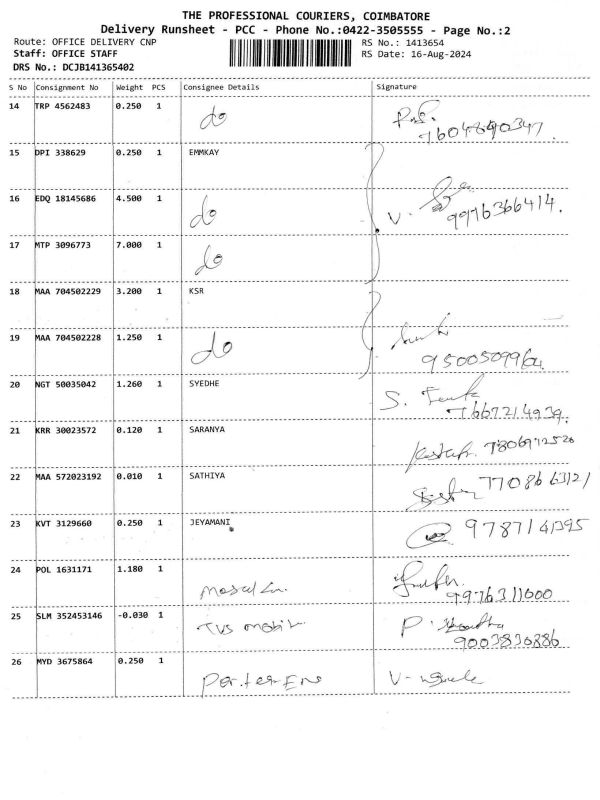 THE PROFESSIONAL COURIERS, COIMBATORE
Delivery Runsheet - PCC - Phone No.:0422-3505555 - Page No.:2
Route: OFFICE DELIVERY CNP RS No.: 1413654
Staff: OFFICE STAFF RS Date: 16-Aug-2024
DRS No.: DCJB141365402
S No Consignment No Weight PCS Consignee Details Signature
14 TRP 4562483 0.250 1 do
15 DPI 338629 0.250 1 EMMKAY
16 EDQ 18145686 4.500 1 do V. 9976366414.
17 MTP 3096773 7.000 1 do
18 MAA 704502229 3.200 1 KSR
19 MAA 704502228 1.250 1 do
20 NGT 50035042 1.260 1 SYEDHE S.
7667214939.
21 KRR 30023572 0.120 1 SARANYA
22 MAA 572023192 0.010 1 SATHIYA
23 KVT 3129660 0.250 1 JEYAMANI
24 POL 1631171 1.180 1
9976311000
25 SLM 352453146 -0.030 1 TVS P.
9003830886
26 MYD 3675864 0.250 1 V-